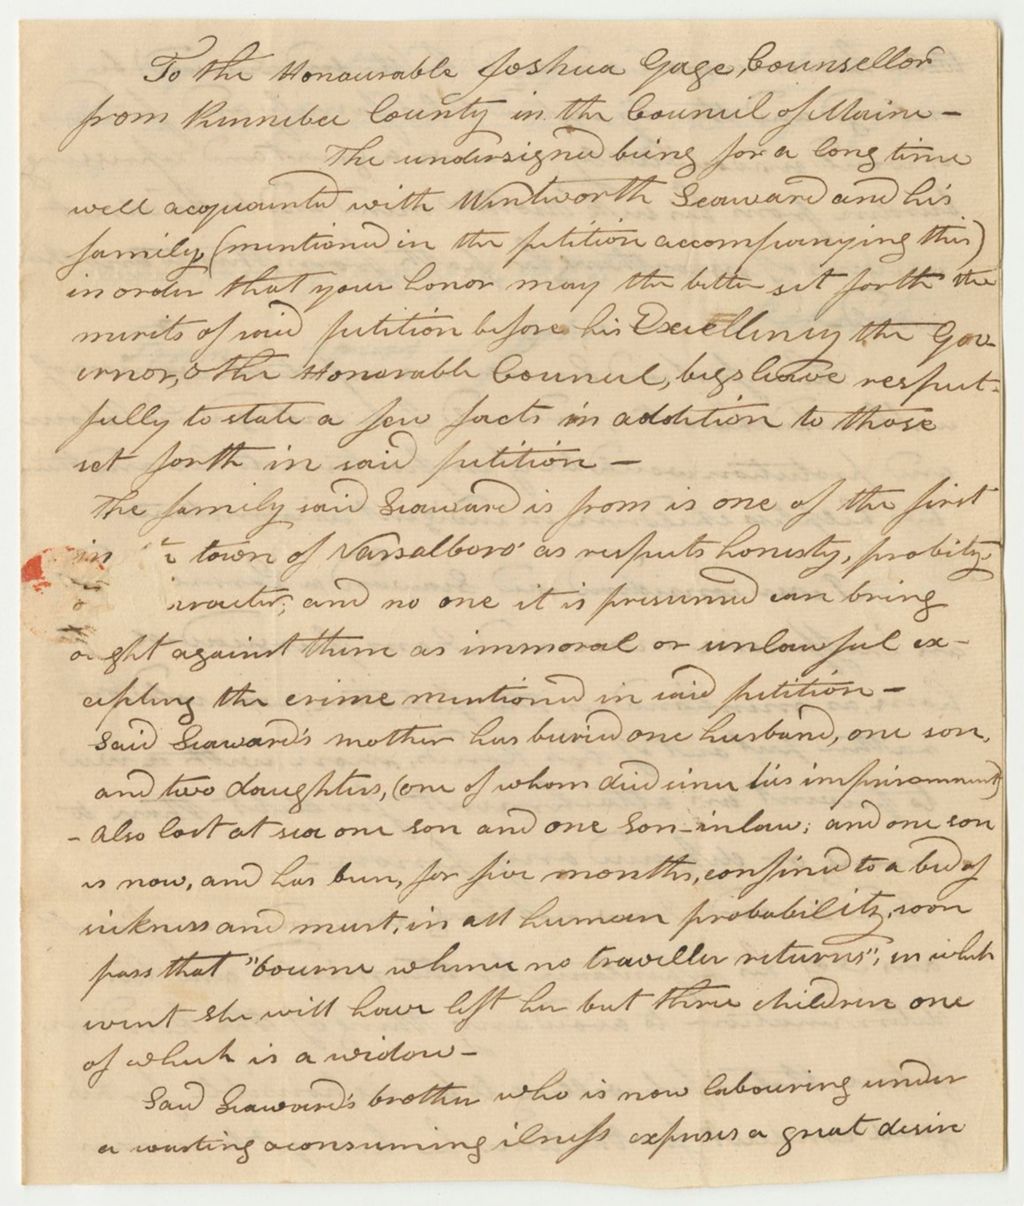 To the Honourable Joshua Gage, Counsellor
from Kennebec County in the Council of Maine —
The undersigned being for a long time
well acquainted with Wentworth Seaward and his
family, (mentioned in the petition accompanying this)
in order that your honor may the better set forth the
merits of said petition before his Excellency the Gov-
ernor, & the Honorable Council, begs leave respect-
fully to state a few facts in addition to those
set forth in said petition —
The family said Seaward is from is one of the first
in town of Vassalboro' as respects honesty, probity
and no one it is presumed can bring
ought against them as immoral or unlawful ex-
cepting the crime mentioned in said petition —
Said Seaward's mother has buried one husband, one son,
and two daughters, (one of whom died since his imprisonment)
- Also lost at sea one son and one son-in law; and one son
is now, and has been, for five months, confined to a bed of
sickness and must, in all human probability, soon
pass that "bourne whence no traveller returns"; in which
event she will have left her but three children one
of which is a widow —
Said Seaward's brother who is now labouring under
a wasting & consuming ilness expresses a great desire